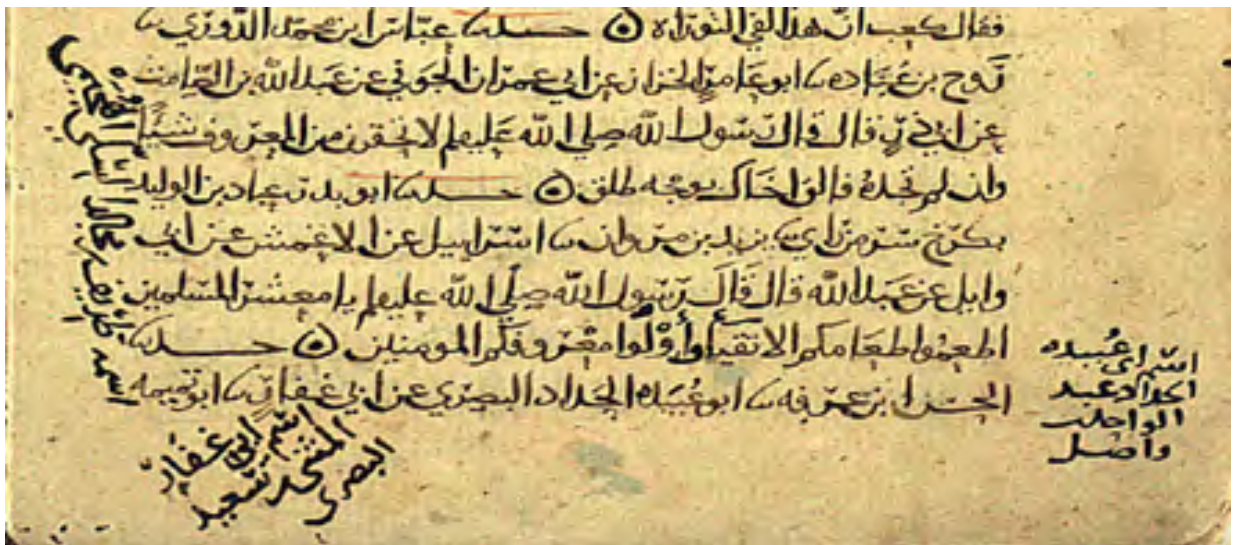 فقال كعب ان هذا لفي التوراه ۞ حدثنا عباس ابن محمد الدوري نا
روح بن عباده نا ابو عامر الخزاز عن ابي عمران الجوني عن عبد الله بن الصامت
عن ابي ذر قال قال رسول الله صلي الله عليه لا تحقرن من المعروف شيئا
وان لم تجده فالق اخاك بوجه طلق ۞ حدثنا ابو بدر عباد بن الوليد
بكرخ سر من راي نا يزيد بن مروان نا اسراييل عن الاعمش عن ابي
وايل عن عبد الله قال قال رسول الله صلي الله عليه يا معشر المسلمين
اطعموا طعامكم الاتقيا وأولوا معروفكم المومنين ۞ حدثنا
الحسن ابن عرفه نا ابو عبيده الحداد البصري عن ابي غفار نا ابو تميمه
اسم ابي عبيده
الحداد عبد
الواحد بن
واصل
اسم ابي غفار
المثنى بن سعيد
البصري
اسمه طريف بن مجالد